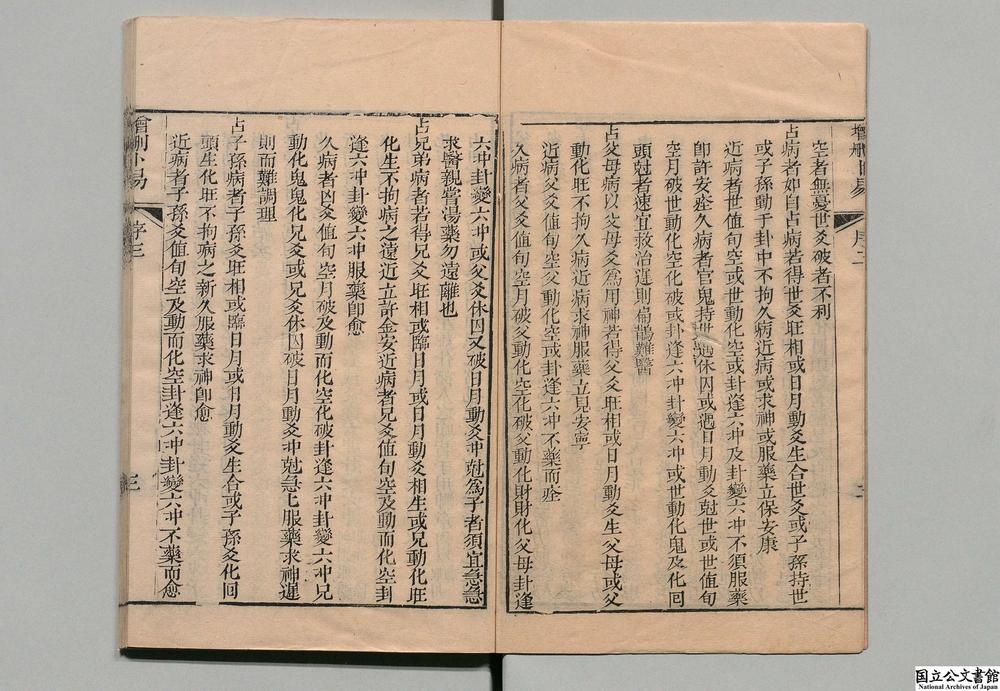 增刪卜易
序二
二
空者無憂世爻破者不利
占病者如自占病若得世爻旺相或日月動爻生合世爻或子孫持世
或子孫動于卦中不拘久病近病或求神或服藥立保安康
近病者世值旬空或世動化空或卦逢六冲及卦變六冲不須服藥
卽許安痊久病者官鬼持世遇休囚或遇日月動爻尅世或世值旬
空月破世動化空化破或卦逢六冲卦變六冲或世動化鬼及化回
頭尅者速宜救治遲則扁鵲難醫
占父母病以父母爻爲用神若得父爻旺相或日月動爻生父母或父
動化旺不拘久病近病求神服藥立見安寧
近病父爻值旬空父動化空或卦逢六冲不藥而痊
久病者父爻值旬空月破父動化空化破父動化財財化父母卦逢
六冲卦變六冲或父爻休囚又破日月動爻冲尅爲子者須宜急急
求醫親嘗湯藥勿遠離也
占兄弟病者若得兄爻旺相或臨日月或日月動爻相生或兄動化旺
化生不拘病之遠近立許金安近病者兄爻值旬空及動而化空卦
逢六冲卦變六冲服藥卽愈
久病者凶爻值旬空月破及動而化空化破卦逢六冲卦變六冲兄
動化鬼鬼化兄爻或兄爻休囚破日月動爻冲尅急上服藥求神遲
則而難調理
占子孫病者子孫爻旺相或臨日月或日月動爻生合或子孫爻化回
頭生化旺不拘病之新久服藥求神卽愈
近病者子孫爻值旬空及動而化空卦逢六冲卦變六冲不藥而愈
增刪卜易
序三
三
国立公文書館
National Archives of Japan